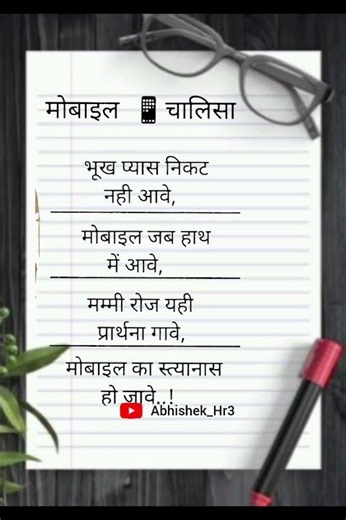 मोबाइल 📱चालिसा
भूख प्यास निकट
नही आवे,
मोबाइल जब हाथ
में आवे,
मम्मी रोज यही
प्रार्थना गावे,
मोबाइल का स्त्यानास
हो जावे..!
Abhishek_Hr3